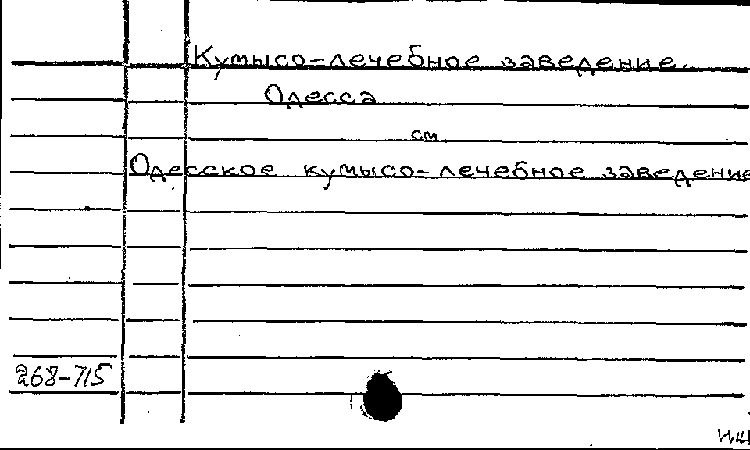 Кумысо-лечебное заведение.
Одесса
см
Одесское кумысо-лечебное заведение
268-715